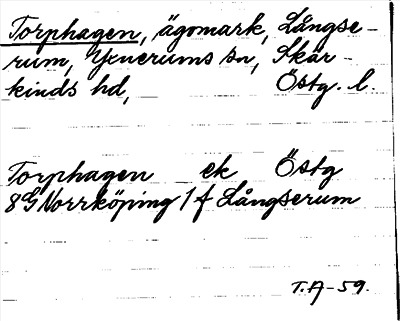 Torphagen, ägomark, Långse-
rum, Yxnerums sn, Skär-
kinds hd, Östg. l.
Torphagen ek Östg
8G Norrköping 1f Långserum
T.A-59.